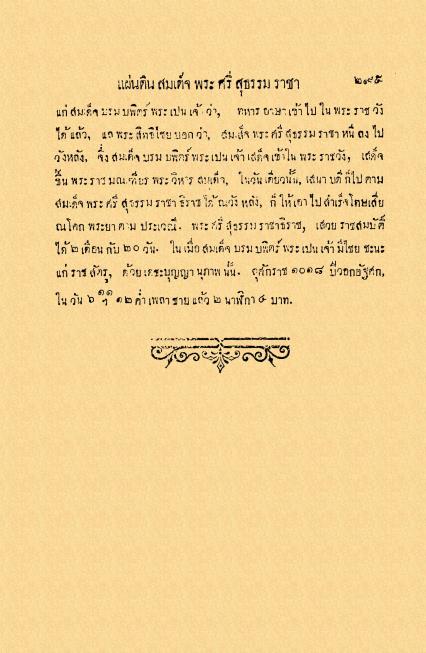 แผ่นดิน สมเด็จ พระ ศรี สุธรรม ราชา ๒๙๕
แก่ สมเด็จ บรม บพิตร์ พระ เปน เจ้า ว่า, ทหาร อาษา เข้า ไป ใน พระ ราช วัง
ได้ แล้ว, แล พระ สิทธิไชย บอก ว่า, สมเด็จ พระ ศรี สุธรรม ราชา หนี ลง ไป
วังหลัง, จึ่ง สมเด็จ บรม บพิตร์ พระ เปน เจ้า เสด็จ เข้า ใน พระ ราชวัง, เสด็จ
ขึ้น พระ ราช มณเฑียร พระ วิหาร สมเด็จ, ในวัน เดียวนั้น, เสนา บดี ก็ ไป ตาม
สมเด็จ พระ ศรี สุธรรม ราชา ธิราช ได้ ณวัง หลัง, ก็ ให้ เอา ไป สำเร็จ โทษเสีย
ณโคก พระยา ตาม ประเวณี. พระ ศรี สุธรรม ราชาธิราช, เสวย ราชสมบัติ
ได้ ๒ เดือน กับ ๒๐ วัน. ใน เมื่อ สมเด็จ บรม บพิตร์ พระ เปน เจ้า มีไชย ชะนะ
แก่ ราช สัตรู, ด้วย เดชะ บุญญา นุภาพ นั้น. ศักราช ๑๐๑๘ ปีวอกอัฐศก,
ใน วัน ๖ ๑๑ ฯ ๑๒ ค่ำ เพลา ชาย แล้ว ๒ นาฬิกา ๕ บาท.